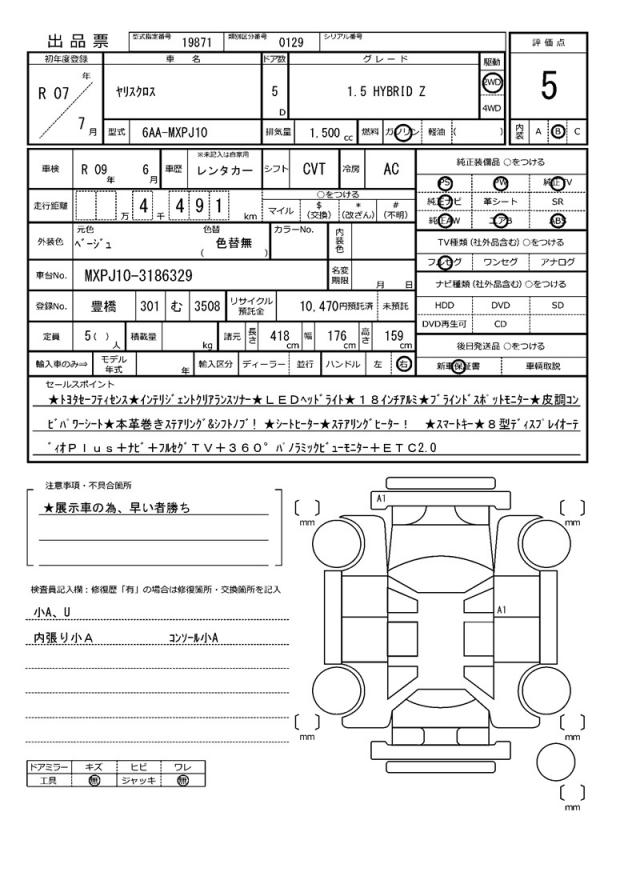 出品票 型式指定番号 19871 類別区分番号 0129 シリアル番号
評価点
5
内装 A B C
初年度登録 車名 ドア数 グレード 駆動
R 07 年 7 月 ヤリスクロス 5 D 1.5 HYBRID Z 2WD 4WD
型式 6AA-MXPJ10 排気量 1.500 cc 燃料 ガソリン 軽油 ( )
車検 R 09 年 6 月 車歴 ※未記入は自家用 レンタカー シフト CVT 冷房 AC
走行距離 万 4 千 491 km ○をつける マイル $ (交換) * (改ざん) # (不明)
外装色 元色 ベージュ 色替 ( 色替無 ) カラーNo. 内装色
車台No. MXPJ10-3186329 名変期限 月 日
登録No. 豊橋 301 む 3508 リサイクル預託金 10,470円預託済 未預託
定員 5( ) 人 積載量 kg 諸元 長さ 418 cm 幅 176 cm 高さ 159 cm
輸入車のみ⇒ モデル年式 年 輸入区分 ディーラー 並行 ハンドル 左 右
純正装備品 ○をつける
PS PW 純正TV
純正ナビ 革シート SR
純正AW エアB ABS
TV種類(社外品含む) ○をつける
フルセグ ワンセグ アナログ
ナビ種類(社外品含む) ○をつける
HDD DVD SD
DVD再生可 CD
後日発送品 ○をつける
新車保証書 車輌取説
セールスポイント
★トヨタセーフティセンス★インテリジェントクリアランスソナー★ＬＥＤヘッドライト★１８インチアルミ★ブラインドスポットモニター★皮調コン
ビパワーシート★本革巻きステアリング&シフトノブ！★シートヒーター★ステアリングヒーター！ ★スマートキー★８型ディスプレイオーデ
ィオＰｌｕｓ＋ナビ＋フルセグＴＶ＋３６０°パノラミックビューモニター＋ＥＴＣ2.0
注意事項・不具合箇所
★展示車の為、早い者勝ち
検査員記入欄：修復歴「有」の場合は修復箇所・交換箇所を記入
小A、U
内張り小Ａ コンソール小A
ドアミラー キズ ヒビ ワレ
工具 無 ジャッキ 無
A1
A1
mm
mm
mm
mm
mm